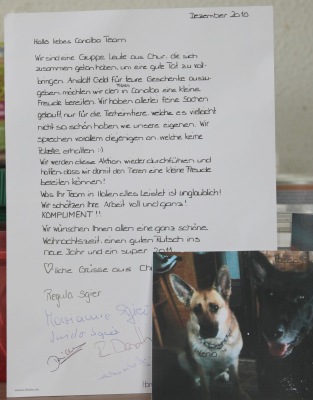 Dezember 2010
Hallo liebes Canalba Team
Wir sind eine Gruppe Leute aus Chur, die sich
zusammen getan haben, um eine gute Tat zu voll-
bringen. Anstatt Geld für teure Geschenke auszu-
geben, möchten wir den Tieren in Canalba eine kleine
Freude bereiten. Wir haben allerlei feine Sachen
gekauft, nur für die Tierheimtiere, welche es vielleicht
nicht so schön haben wie unsere eigenen. Wir
sprechen vorallem diejenigen an, welche keine
Pakete erhalten :)
Wir werden diese Aktion wieder durchführen und
hoffen, dass wir damit den Tieren eine kleine Freude
bereiten können!
Was Ihr Team in Italien alles Leistet ist unglaublich!
Wir schätzen Ihre Arbeit voll und ganz!
KOMPLIMENT!!
Wir wünschen Ihnen allen eine ganz schöne
Weihnachtszeit, einen guten Rutsch ins
neue Jahr und ein super 2011
liche Grüsse aus Ch
Regula
Marianne